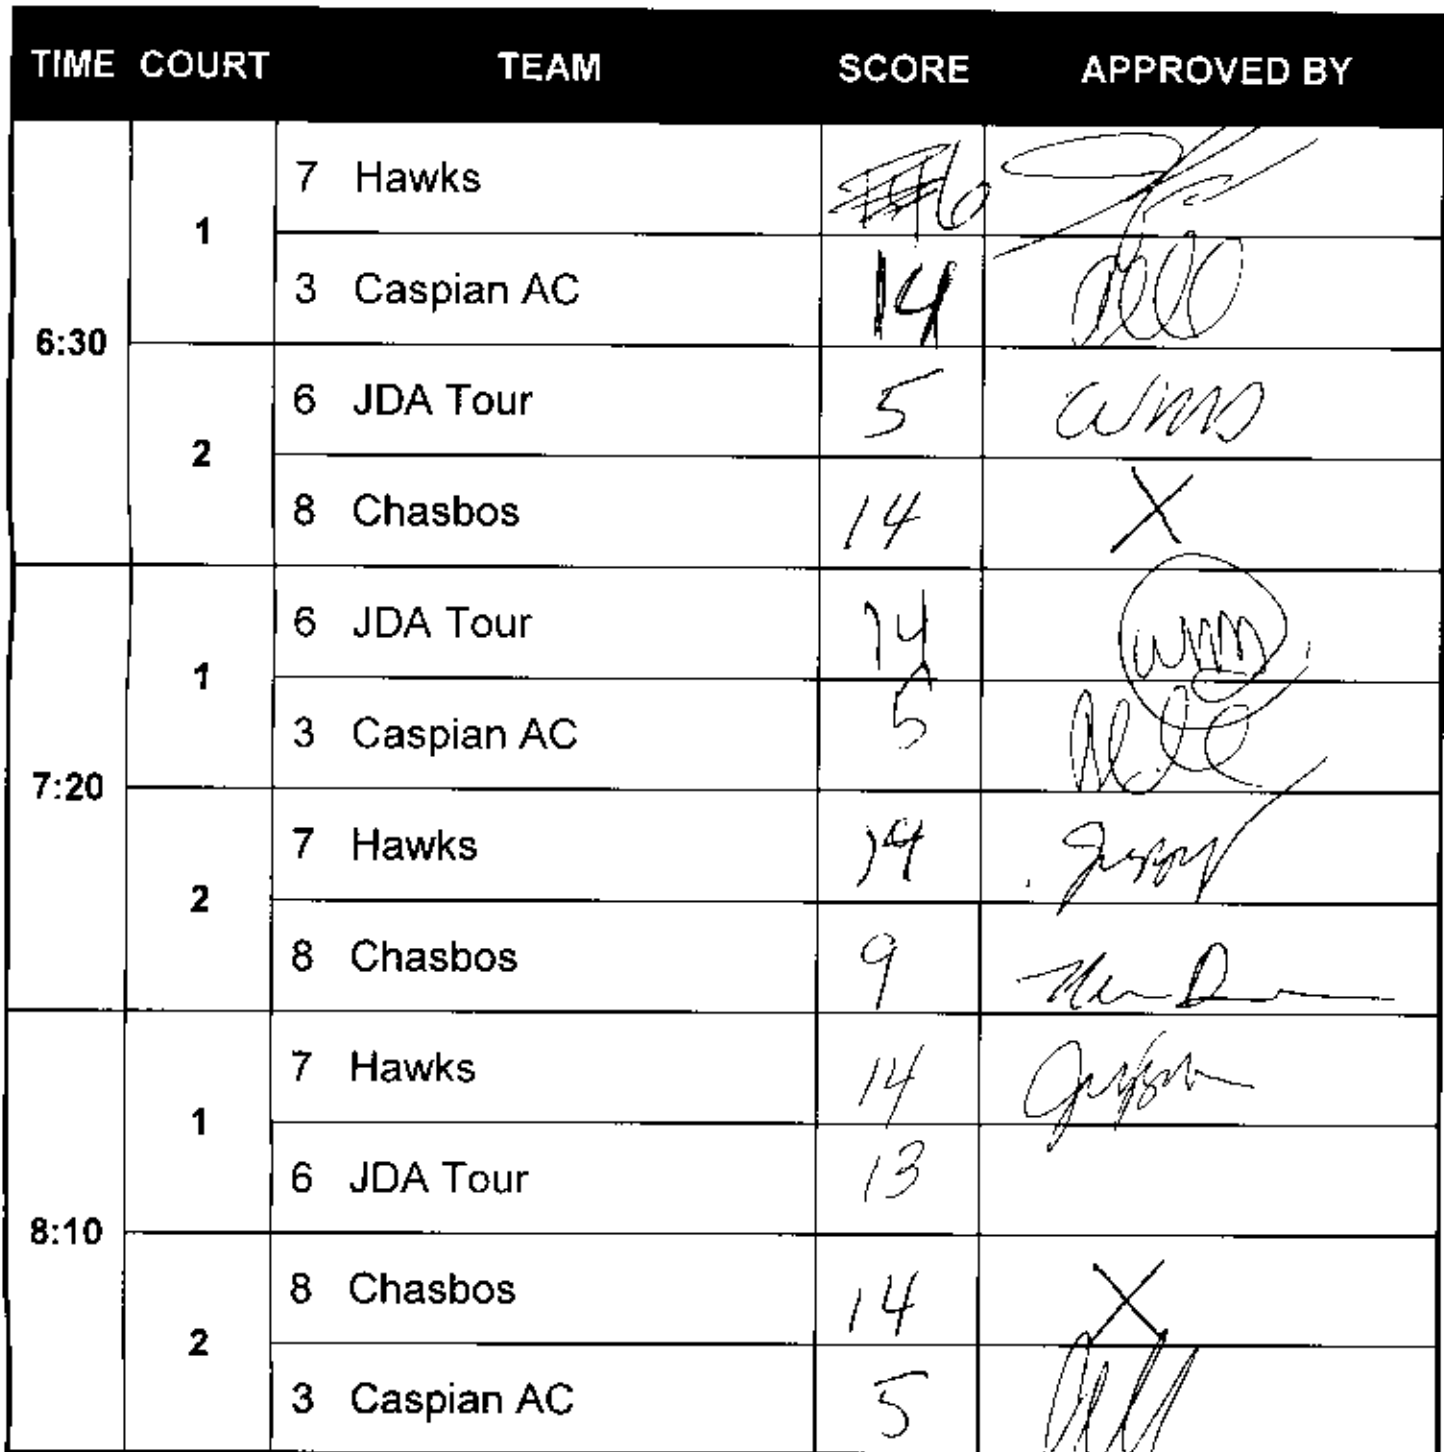 TIME COURT TEAM SCORE APPROVED BY
6:30
1
7 Hawks 6
3 Caspian AC 14
2
6 JDA Tour 5
8 Chasbos 14 X
7:20
1
6 JDA Tour 14
3 Caspian AC 5
2
7 Hawks 14
8 Chasbos 9
8:10
1
7 Hawks 14
6 JDA Tour 13
2
8 Chasbos 14 X
3 Caspian AC 5